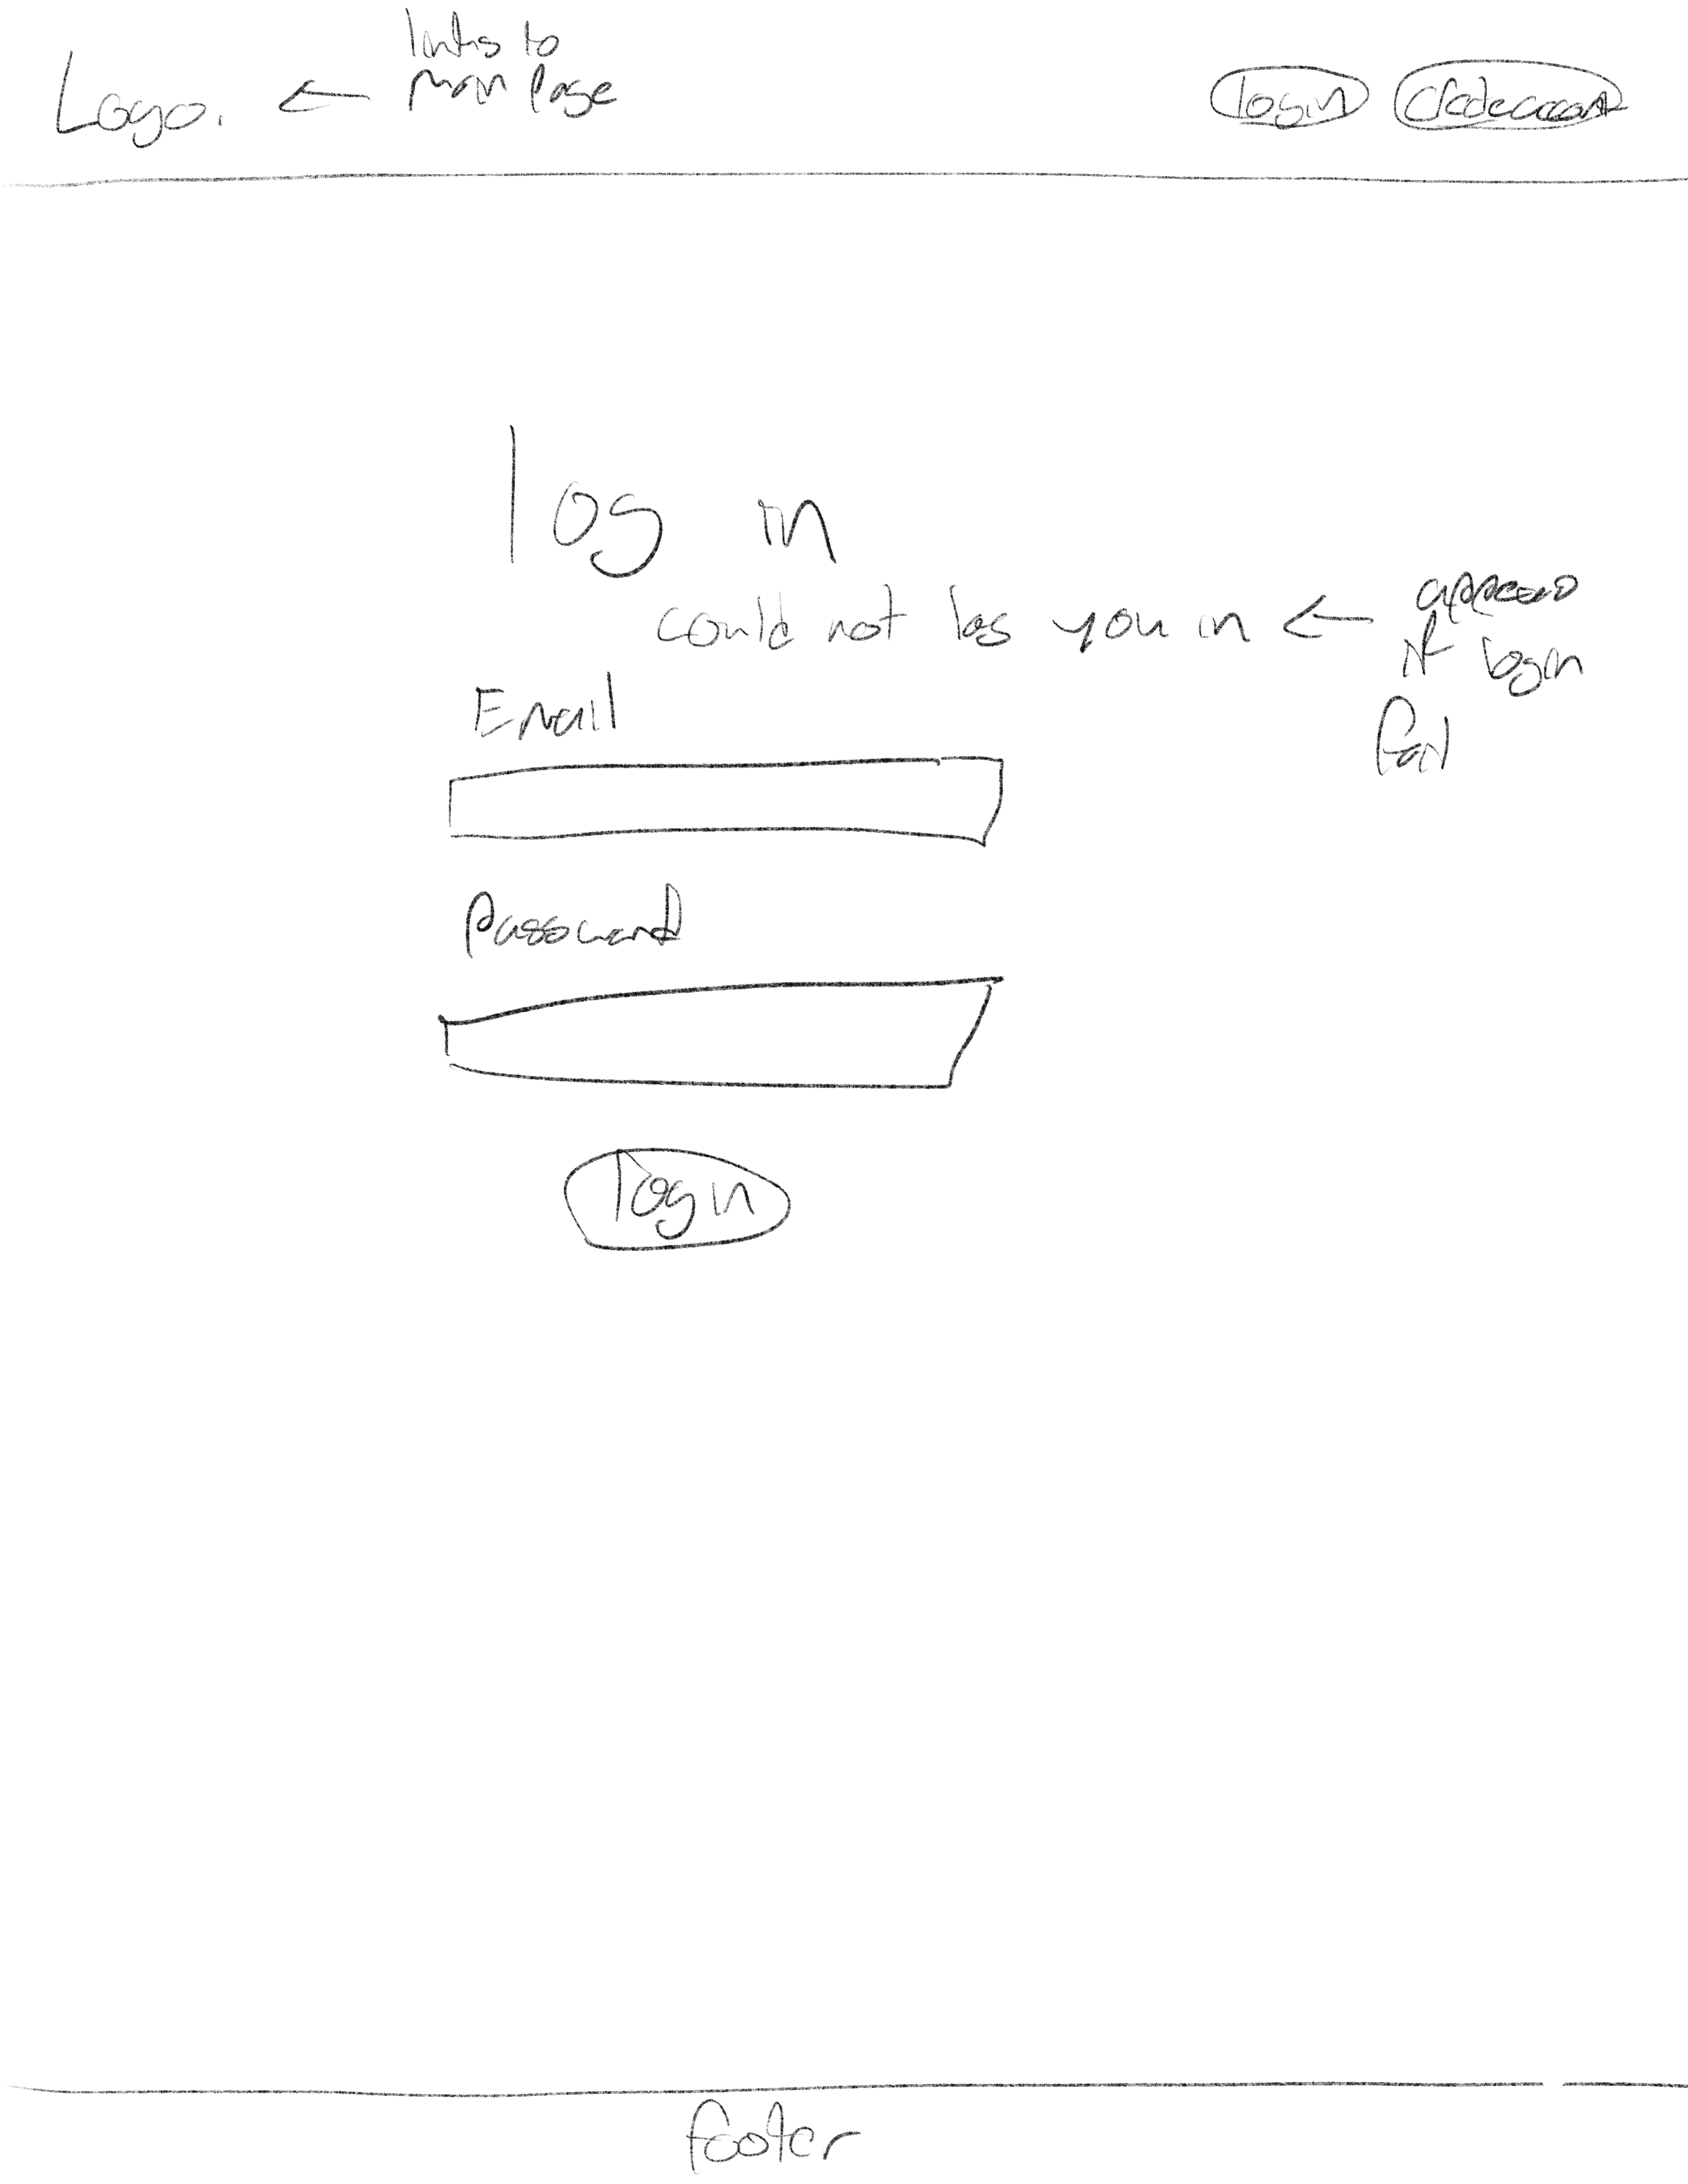 links to
main page
Logo.
login
create account
log in
could not log you in
appears
if login
fail
Email
Password
login
footer